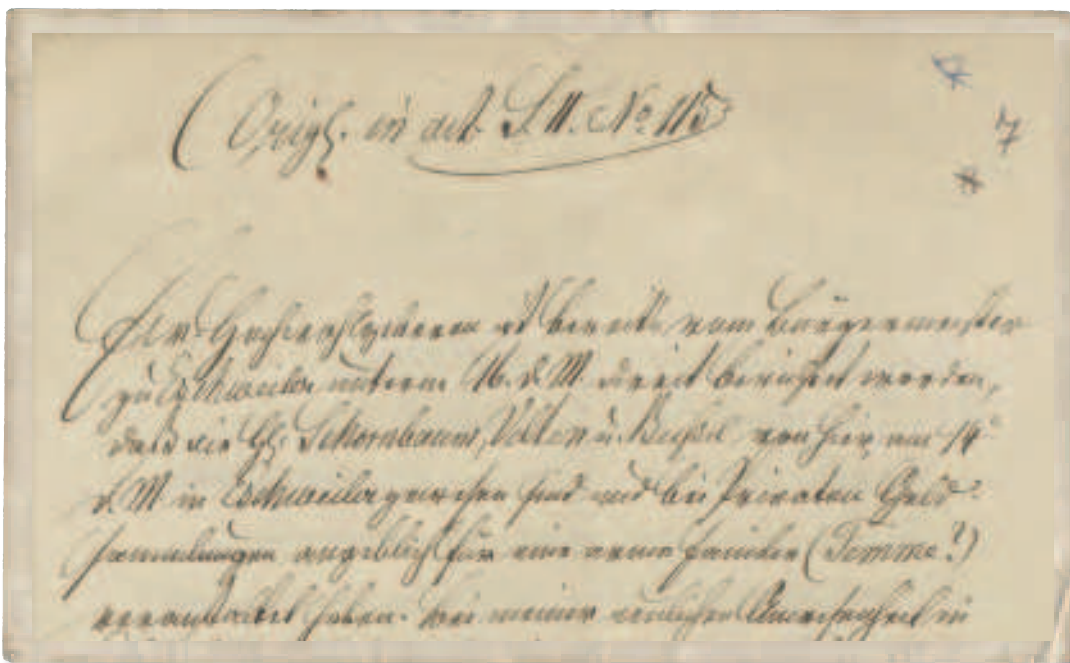 (Origl. in act. S. II. No 115
7
Euer Hochwohlgeboren ist bereits vom Bürgermeister
zu Eschweiler unterm 16. d. M. direct berichtet worden,
daß die Hh. Schornbaum, Volten u. von hier am 14
d. M in Eschweiler gewesen sind und bei Privaten Geld-
sammlungen angeblich für eine arme Familie (Temme?)
veranstaltet haben. Bei meiner Anwesenheit in